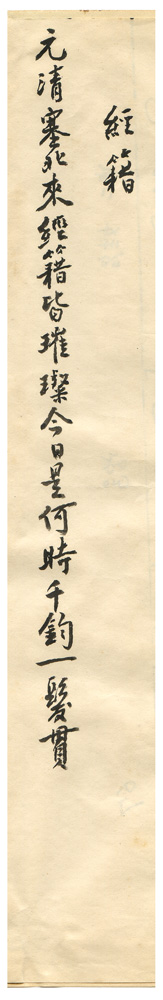 經籍
元清塞北來經籍皆璀璨今日是何時千鈞一髮貫